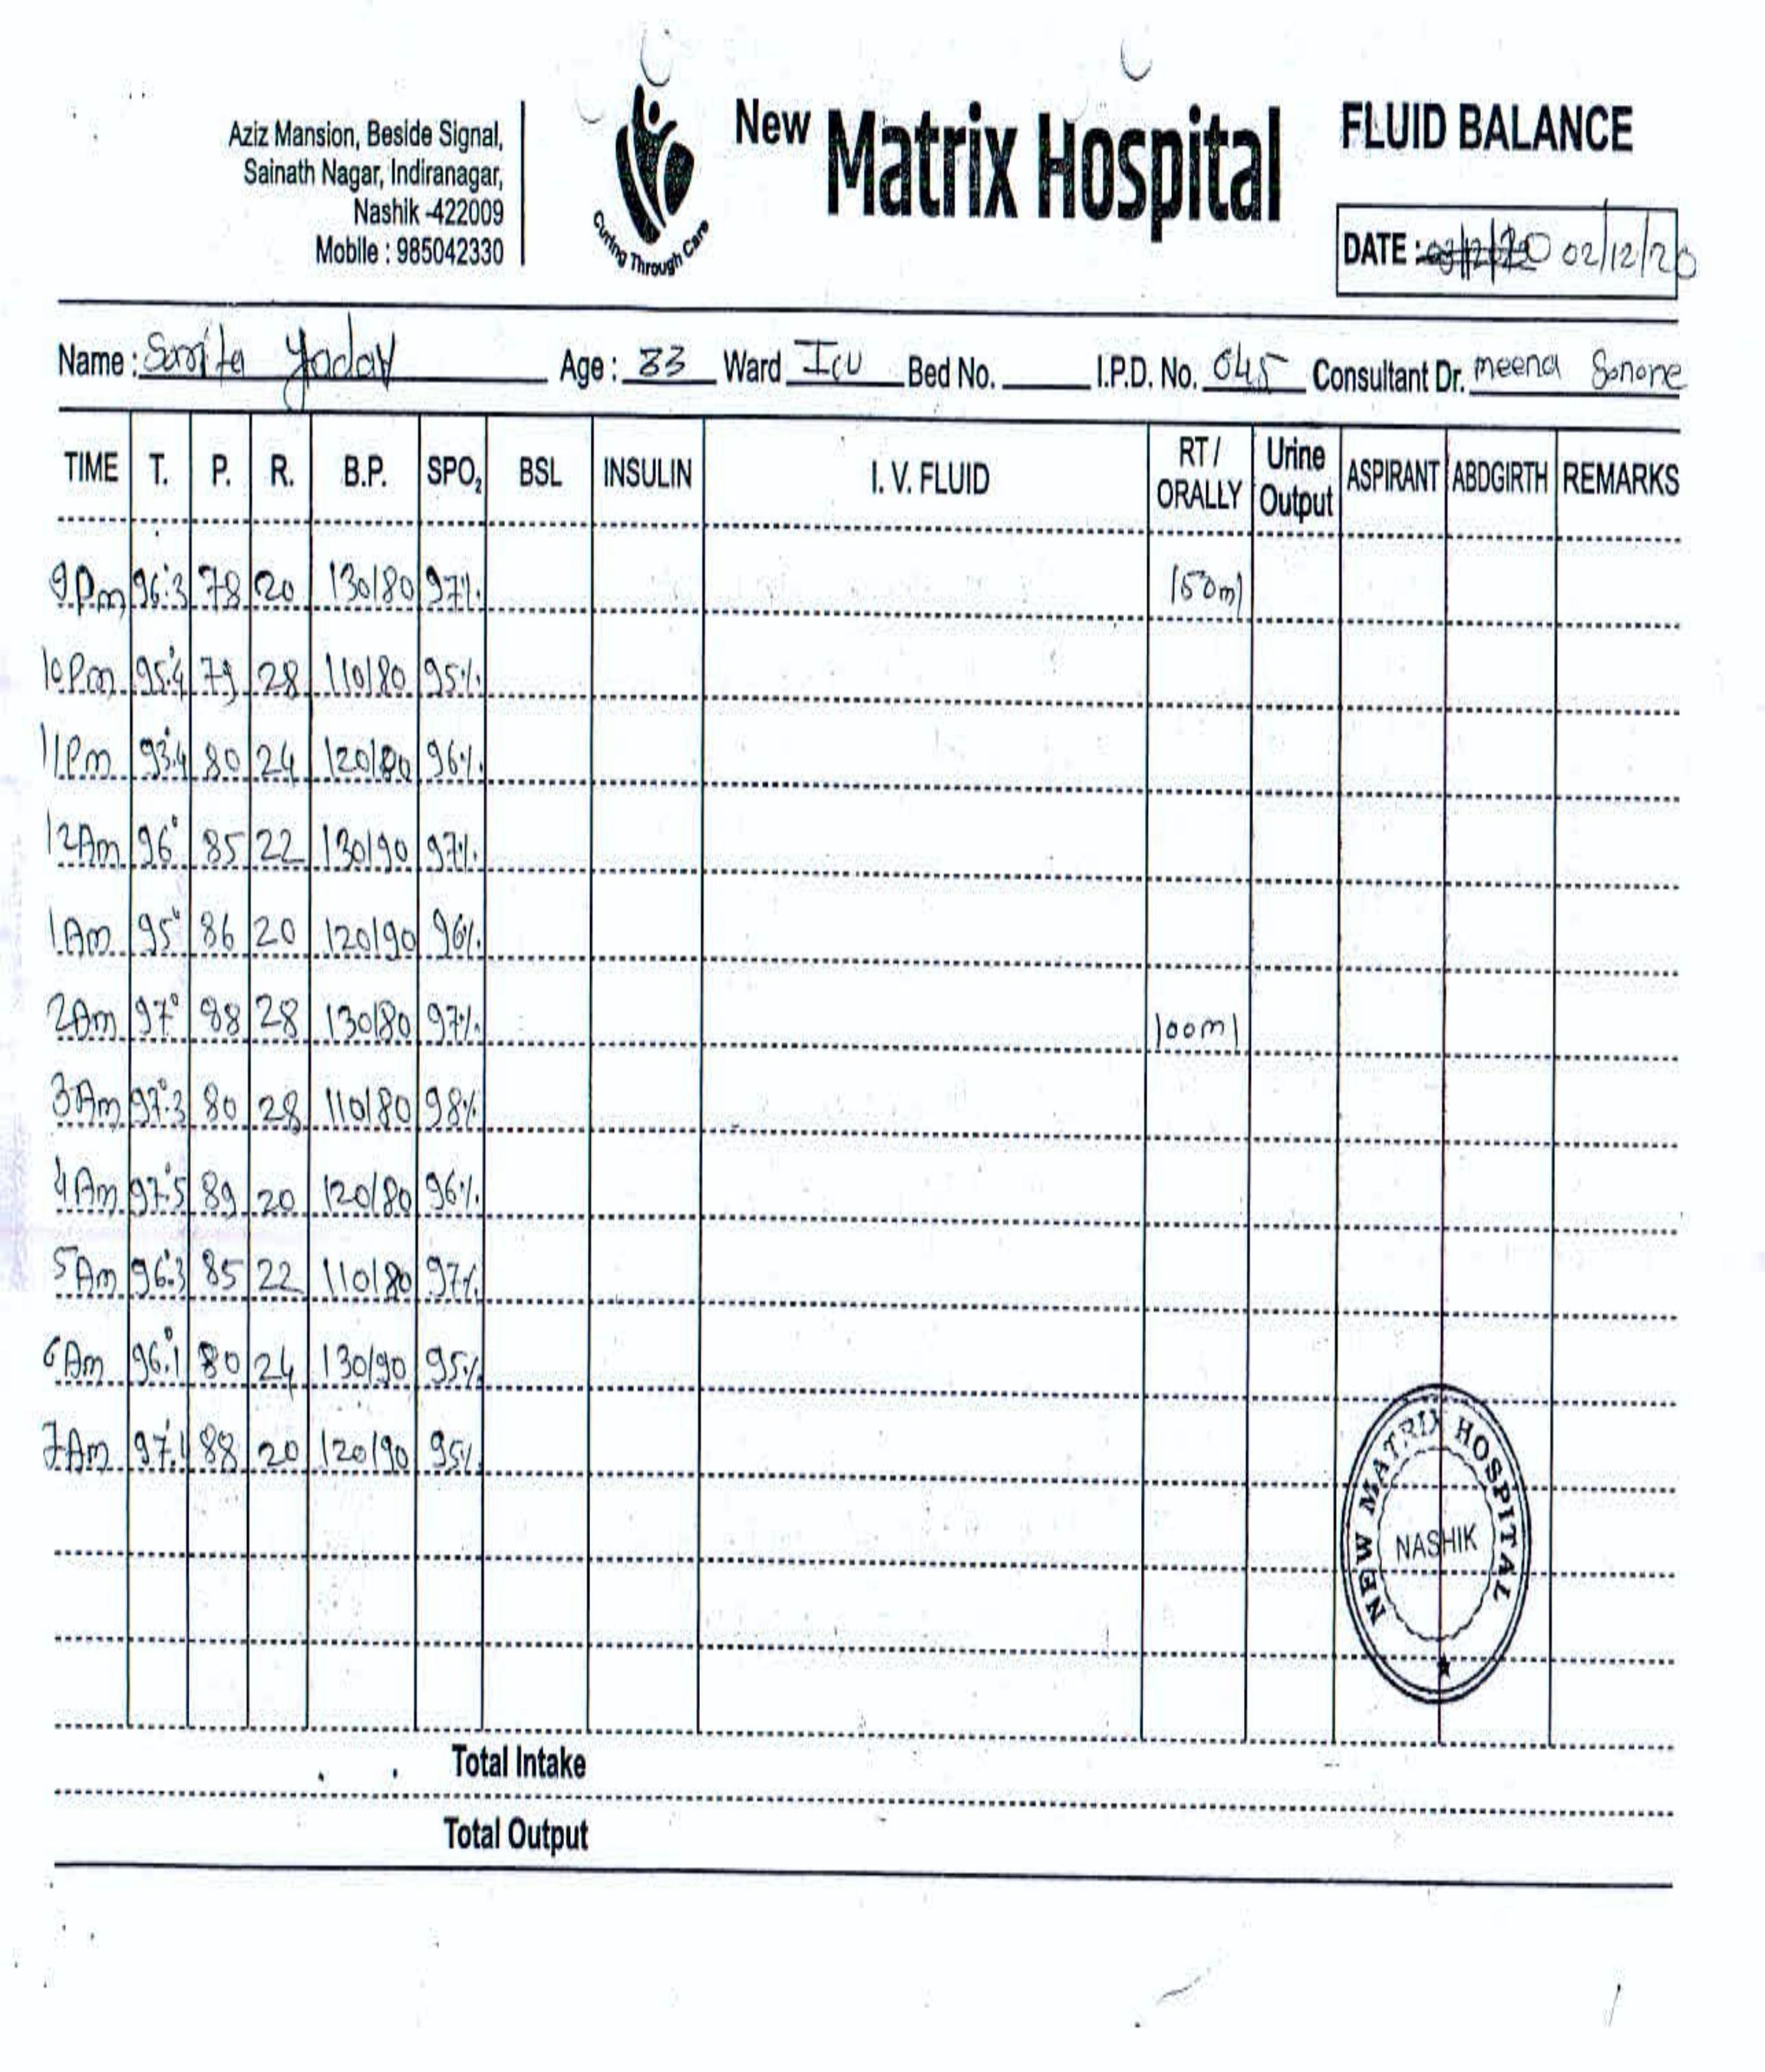 Aziz Mansion, Beside Signal,
Sainath Nagar, Indiranagar,
Nashik -422009
Mobile : 985042330
Curing Through Care
New Matrix Hospital
FLUID BALANCE
DATE : 02/12/20
Name : Yadav Age : 33 Ward ICU Bed No. I.P.D. No. 045 Consultant Dr. meena Sonone
TIME T. P. R. B.P. SPO₂ BSL INSULIN I. V. FLUID RT / ORALLY Urine Output ASPIRANT ABDGIRTH REMARKS
9Pm 96°.3 78 20 130/80 97% 150ml
10Pm 95°.4 79 28 110/80 95%
11Pm 93°.4 80 24 120/80 96%
12Am 96° 85 22 130/90 97%
1Am 95° 86 20 120/90 96%
2Am 97° 88 28 130/80 97% 100ml
3Am 97°.3 80 28 110/80 98%
4Am 97°.5 89 20 120/80 96%
5Am 96°.3 85 22 110/80 97%
6Am 96°.1 80 24 130/90 95%
7Am 97°.1 88 20 120/90 95%
NEW MATRIX HOSPITAL
NASHIK
Total Intake
Total Output